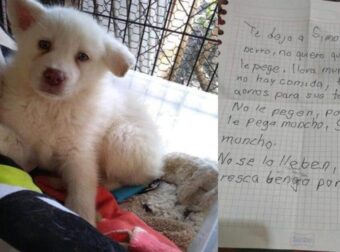 Te dejo a Simo
perro, no quiero q
le pege. llora mu
no hay comida,
para su
No le pegen, po
le pega mancho, S
mancho.
No se la lleben,
resca benga por